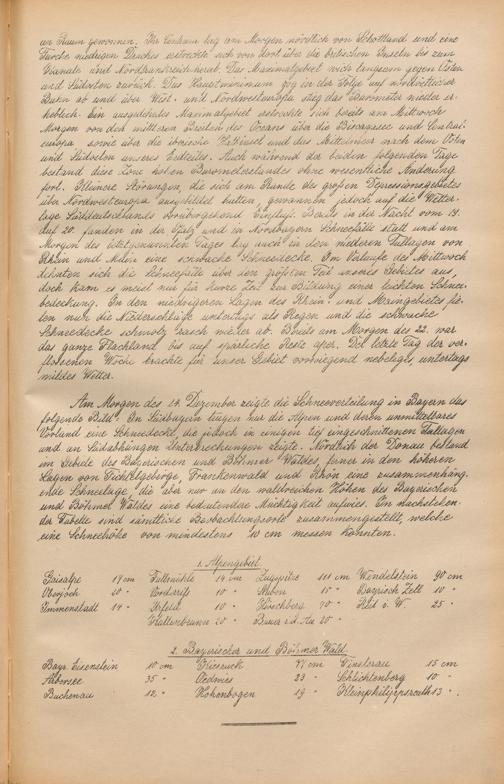 an Raum gewonnen. Ihr Centrum lag am Morgen nördlich von Schottland und eine
Furche niedrigen Druckes erstreckte sich von dort über die britischen Inseln bis zum
Kanale und Nordfrankreich herab. Das Maximalgebiet wich langsam gegen Osten
und Südosten zurück. Das Hauptminimum zog in der Folge auf nordöstlicher
Bahn ab und über West- und Nordwesteuropa stieg das Barometer wieder er-
heblich. Ein ausgedehntes Maximalgebiet erstreckte sich bereits am Mittwoch
Morgen von den mittleren Breiten des Oceans über die Biscayasee und Central-
europa sowie über die iberische Halbinsel und das Mittelmeer nach dem Osten
und Südosten unseres Erdteiles. Auch während der beiden folgenden Tage
bestand diese Zone hohen Barometerstandes ohne wesentliche Änderung
fort. Kleinere Störungen, die sich am Rande des großen Depressionsgebietes
über Nordwesteuropa ausgebildet hatten, gewannen jedoch auf die Witter-
lage Süddeutschlands vorübergehend Einfluß. Bereits in der Nacht vom 19.
auf 20. fanden in der Pfalz und in Nordbayern Schneefälle statt und am
Morgen des letztgenannten Tages lag auch in den niederen Tallagen von
Rhein und Main eine schwache Schneedecke. Im Verlaufe des Mittwoch
dehnten sich die Schneefälle über den größten Teil unseres Gebietes aus
doch kam es meist nur für kurze Zeit zur Bildung einer leichten Schnee-
bedeckung. In den niedrigeren Lagen des Rhein und Maingebietes fie-
len nun die Niederschläge untertags als Regen und die schwache
Schneedecke schmolz rasch wieder ab. Bereits am Morgen des 22. war
das ganze Flachland bis auf spärliche Reste aper. Der letzte Tag der ver-
flossenen Woche brachte für unser Gebiet vorwiegend nebeliges, untertags
mildes Wetter.
Am Morgen des 24. Dezember zeigte die Schneeverteilung in Bayern das
folgende Bild. In Südbayern trugen nur die Alpen und deren unmittelbares
Vorland eine Schneedecke, die jedoch in einigen tief eingeschnittenen Tallagen
und an Südabhängen Unterbrechungen zeigte. Nördlich der Donau bestand
im Gebiete des Bayerischen und Böhmer Waldes, ferner in den höheren
Lagen von Fichtelgebirge, Frankenwald und Rhön eine zusammenhäng-
ende Schneelage, die aber nur an den waldreichen Höhen des Bayerischen
und Böhmer Waldes eine bedeutendere Mächtigkeit aufwies. In nachstehen-
der Tabelle sind sämtliche Beobachtungsorte zusammengestellt, welche
eine Schneehöhe von mindestens 10 cm messen konnten.
1. Alpengebiet.
Gaisalpe 19 cm Fallmühle 14 cm Zugspitze cm Wendelstein 90 cm
Oberjoch 20 " Vorderriß 10 " " Bayrisch Zell 10 "
Immenstadt 14 " 10 " Hirschberg 70 " Reit i. W. 25 "
" Baier i.d. Au 20 "
2. Bayerischer und Böhmer Wald.
Bayr. Eisenstein 10 cm cm Finsterau 15 cm
Arbersee 35 " 23 " Schlichtenberg 10 "
Buchenau 12 " Hohenbogen 19 " Kleinphilippsreuth 13 ".